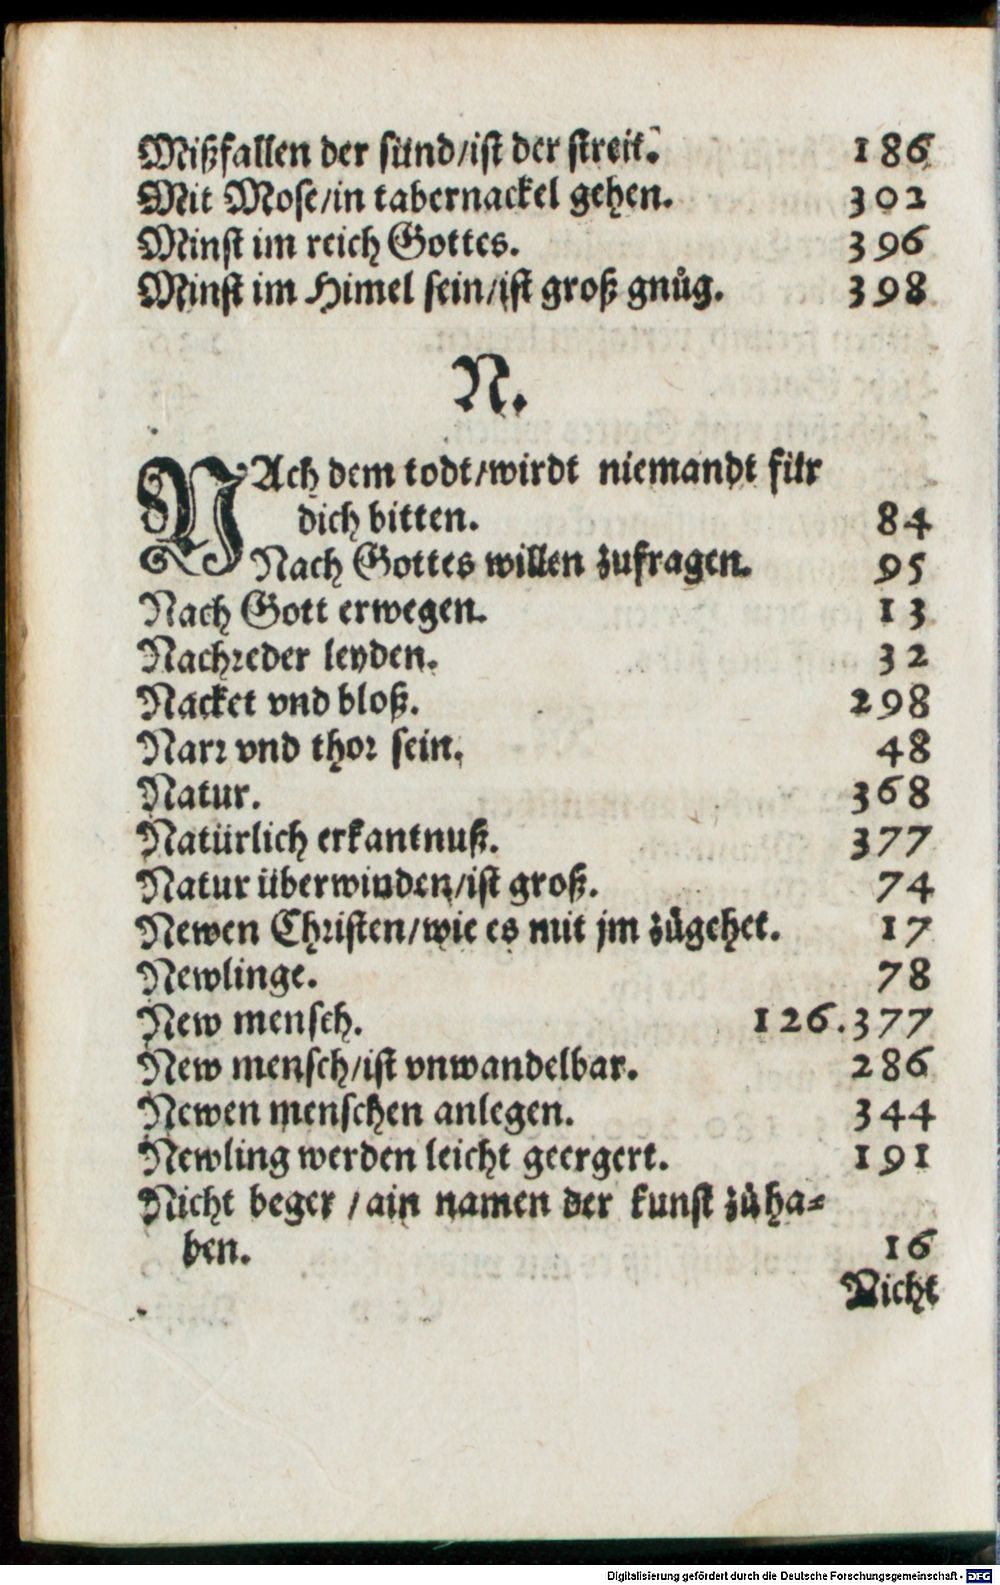 Mißfallen der sünd/ist der streit. 186
Mit Mose/in tabernackel gehen. 302
Minst im reich Gottes. 396
Minst im Himel sein/ist groß gnůg. 398
N.
NAch dem todt/wirdt niemandt für
dich bitten. 84
Nach Gottes willen zufragen. 95
Nach Gott erwegen. 13
Nachreder leyden. 32
Nacket vnd bloß. 298
Narr vnd thor sein. 48
Natur. 368
Natürlich erkantnuß. 377
Natur überwinden/ist groß. 74
Newen Christen/wie es mit jm zůgehet. 17
Newlinge. 78
New mensch. 126.377
New mensch/ist vnwandelbar. 286
Newen menschen anlegen. 344
Newling werden leicht geergert. 191
Nicht beger / ain namen der kunst zůha⸗
ben. 16
Nicht
Digitalisierung gefördert durch die Deutsche Forschungsgemeinschaft - DFG